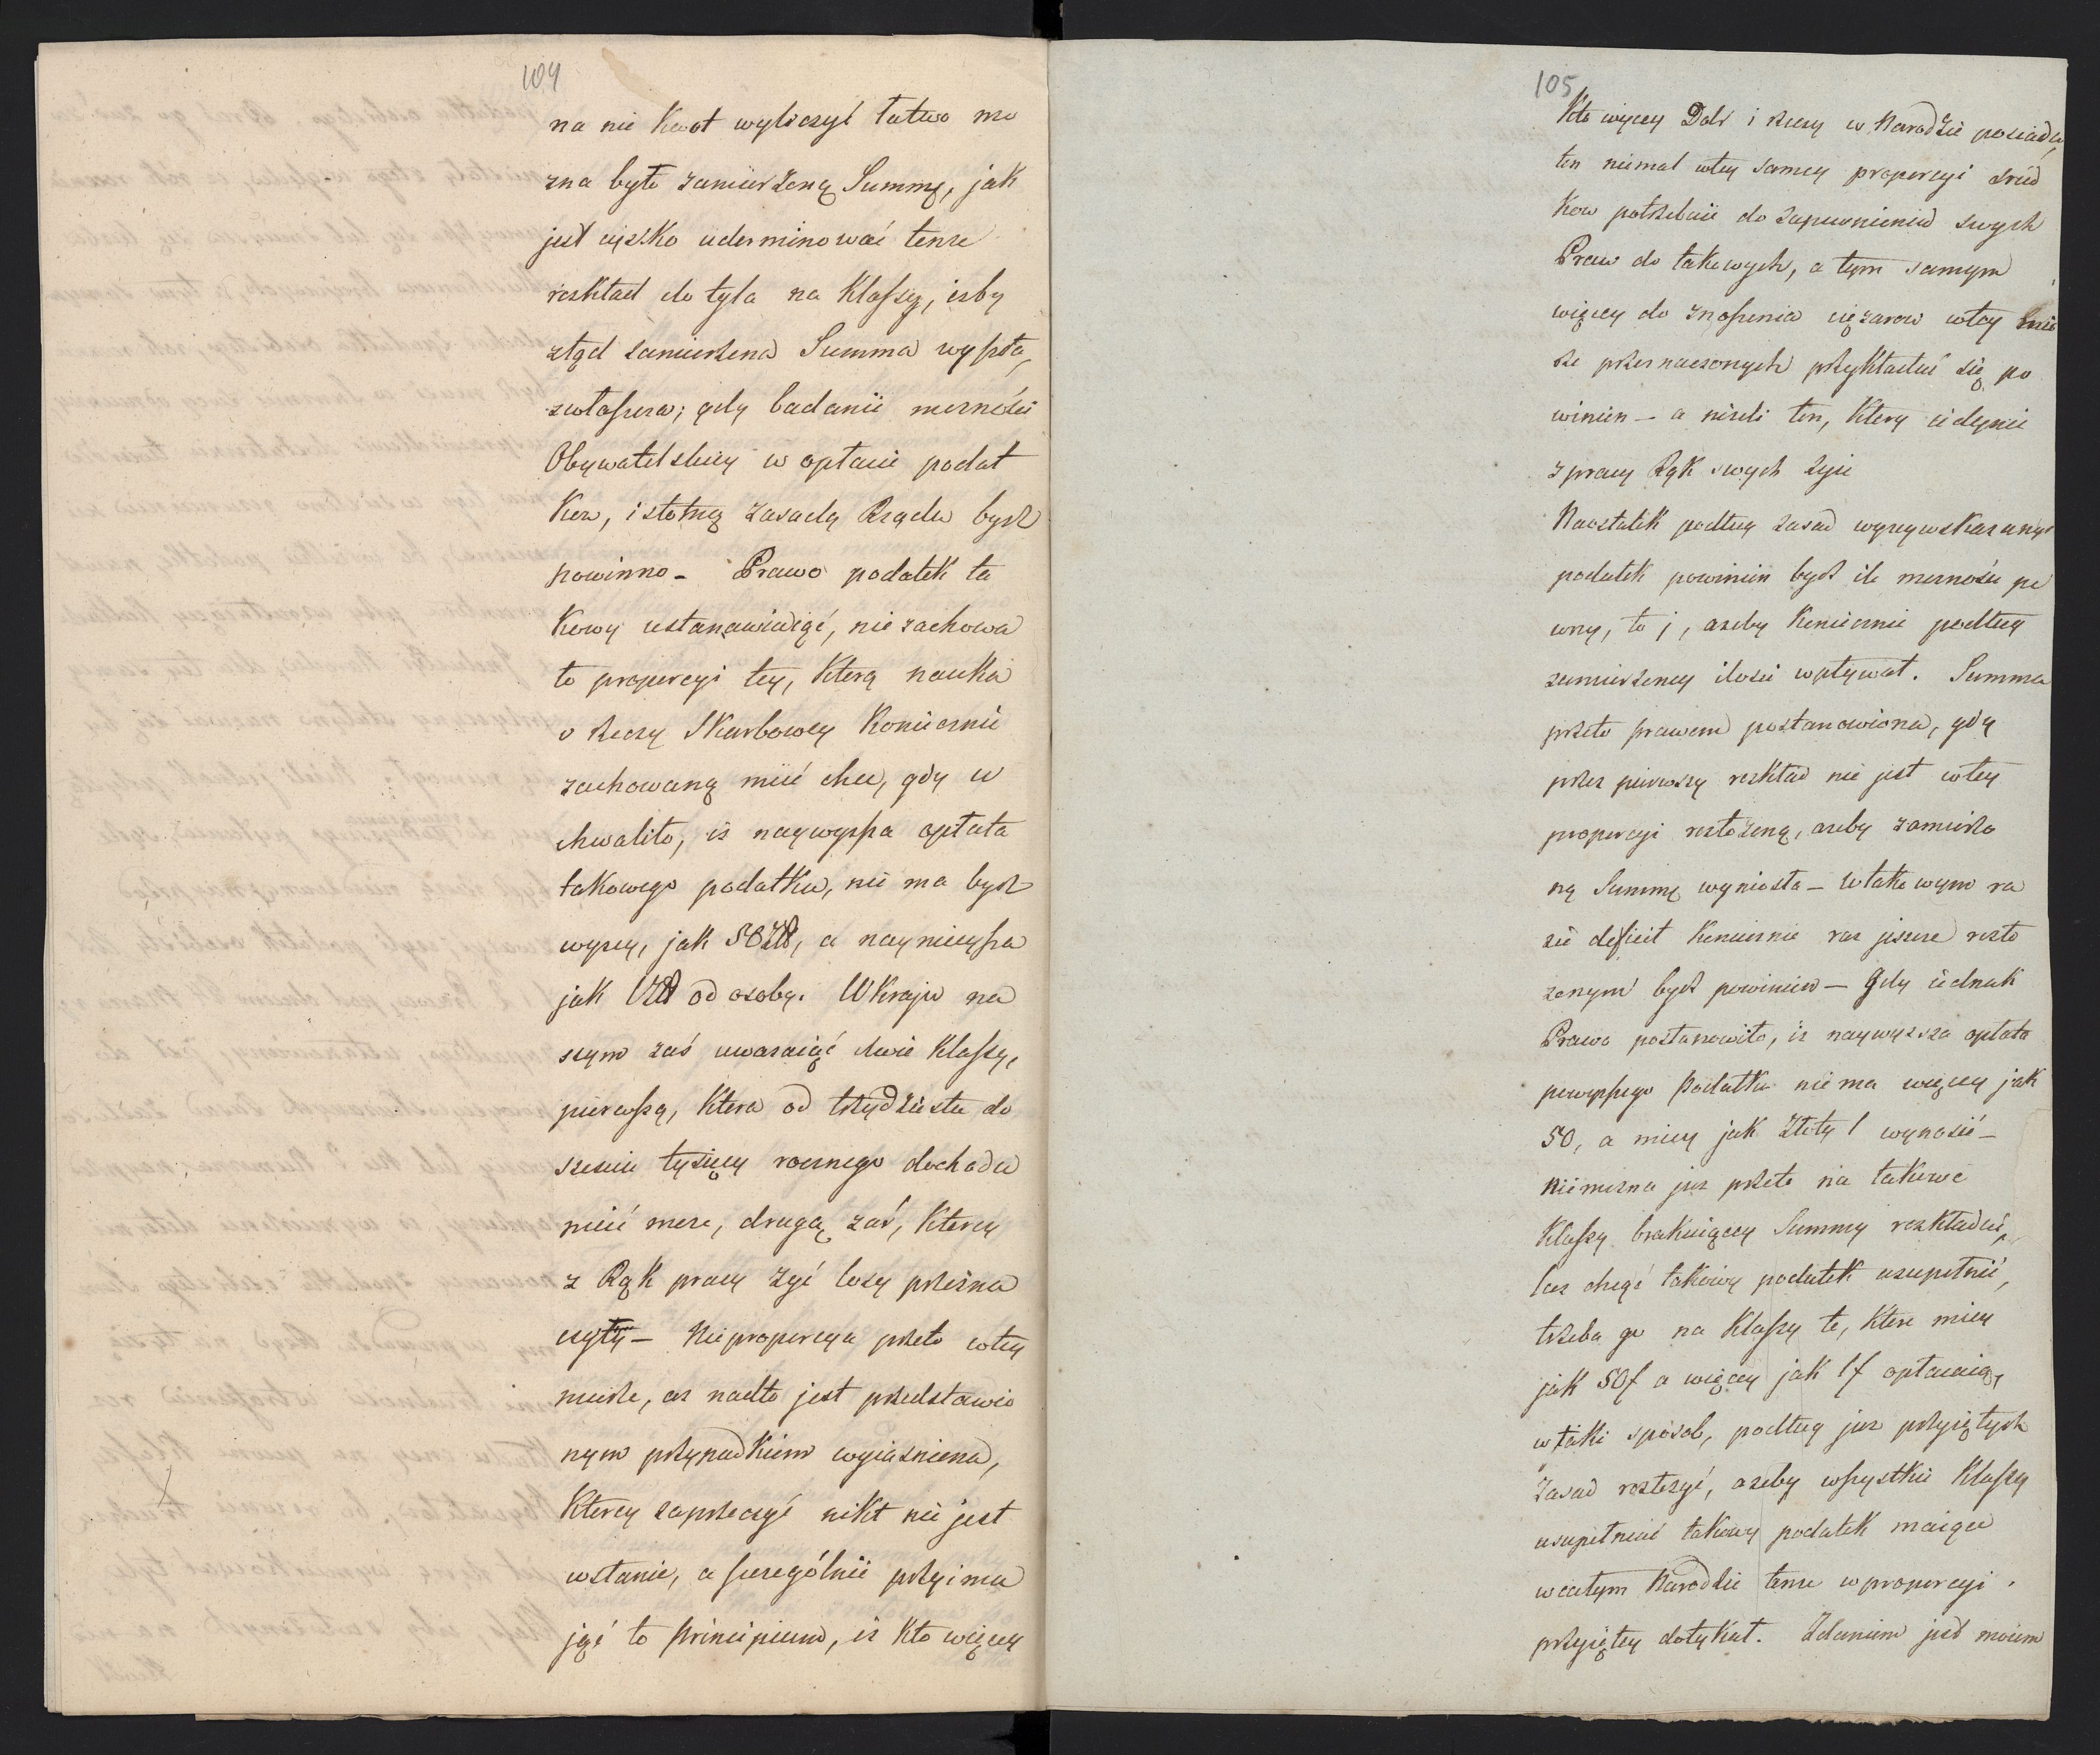 104
na nie kwot wyliczyć łatwo mo
zna było zamierzoną Summę, jak
jest cięzko udeterminować tenze
rozkład do tyla na Klassy, izby
ztąd zamierzona Summa wyszła,
zwłaszcza; gdy badanie mozności
Obywatelskiey w opłacie podat
kow, istotną zasadą Rządu bydź
powinno – Prawo podatek ta
kowy ustanawiaiąć, nie zachowa
ło proporcyi tey, którą nauka
o rzeczy Skarbowey koniecznie
zachowaną mieć chce, gdy u
chwaliło, iz naywyzsza opłata
takowego podatku, nie ma bydz
wyzey, jak 50 Zł, a naynizsza
jak 1 Zł od osoby. W kraju na
szym zaś uwazaiąć dwie Klassy,
pierwszą, która od trzydziestu do
sześciu tysięcy rocznego dochodu
mieć moze, drugą zaś, którey
z Rąk pracy zyć losy przezna
czyły – Nieproporcya przeto w tey
mierze, az nadto jest przedstawio
nym przypadkiem wyiasniona,
ktorey zaprzeczyć nikt nie jest
wstanie, a szczególnie przyima
jąć to principium, iz kto więcey
105
Kto więcey Dobr i rzeczy w Narodzie posiada,
ten niemal w tey samey proporcyi środ
kow potrzebuie do zapewnienia swych
Praw do takowych, a tym samym
więcey do znoszenia cięzarow w tey mie
rze przeznaczonych przykładać się po
winien – a nizeli ten, który iedynie
z pracy Rąk swych zyie
Naostatek podług zasad wyzey wskazanych
podatek powinien bydź ile mozności pe
wny, to j, azeby koniecznie podług
zamierzoney ilości wpływał. Summa
przeto prawem postanowiona, gdy
przez pierwszy rozkład nie jest w tey
proporcyi rozłozoną, azeby zamierzo
ną Summę wyniosła – w takowym ra
zie deficit koniecznie raz jeszcze rozło
zonym bydź powinien – Gdy iednak
Prawo postanowiło, iz naywyzsza opłata
powyzszego Podatku niema więcey jak
50, a mniey jak Złoty 1 wynosić –
niemozna juz przeto na takowe
Klassy brakuiącey Summy rozkładać,
lecz chcąć takowy podatek uzupełnić,
trzeba go na Klassy te, które mniey
jak 50 f a więcey jak 1 f opłacaią,
w taki sposob, podług juz przyiętych
Zasad rozłozyć, azeby wszystkie Klassy
uzupełniać takowy podatek maiące
w całym Narodzie tenze w proporcyi
przyiętey dotykał. Zdaniem jest moiem